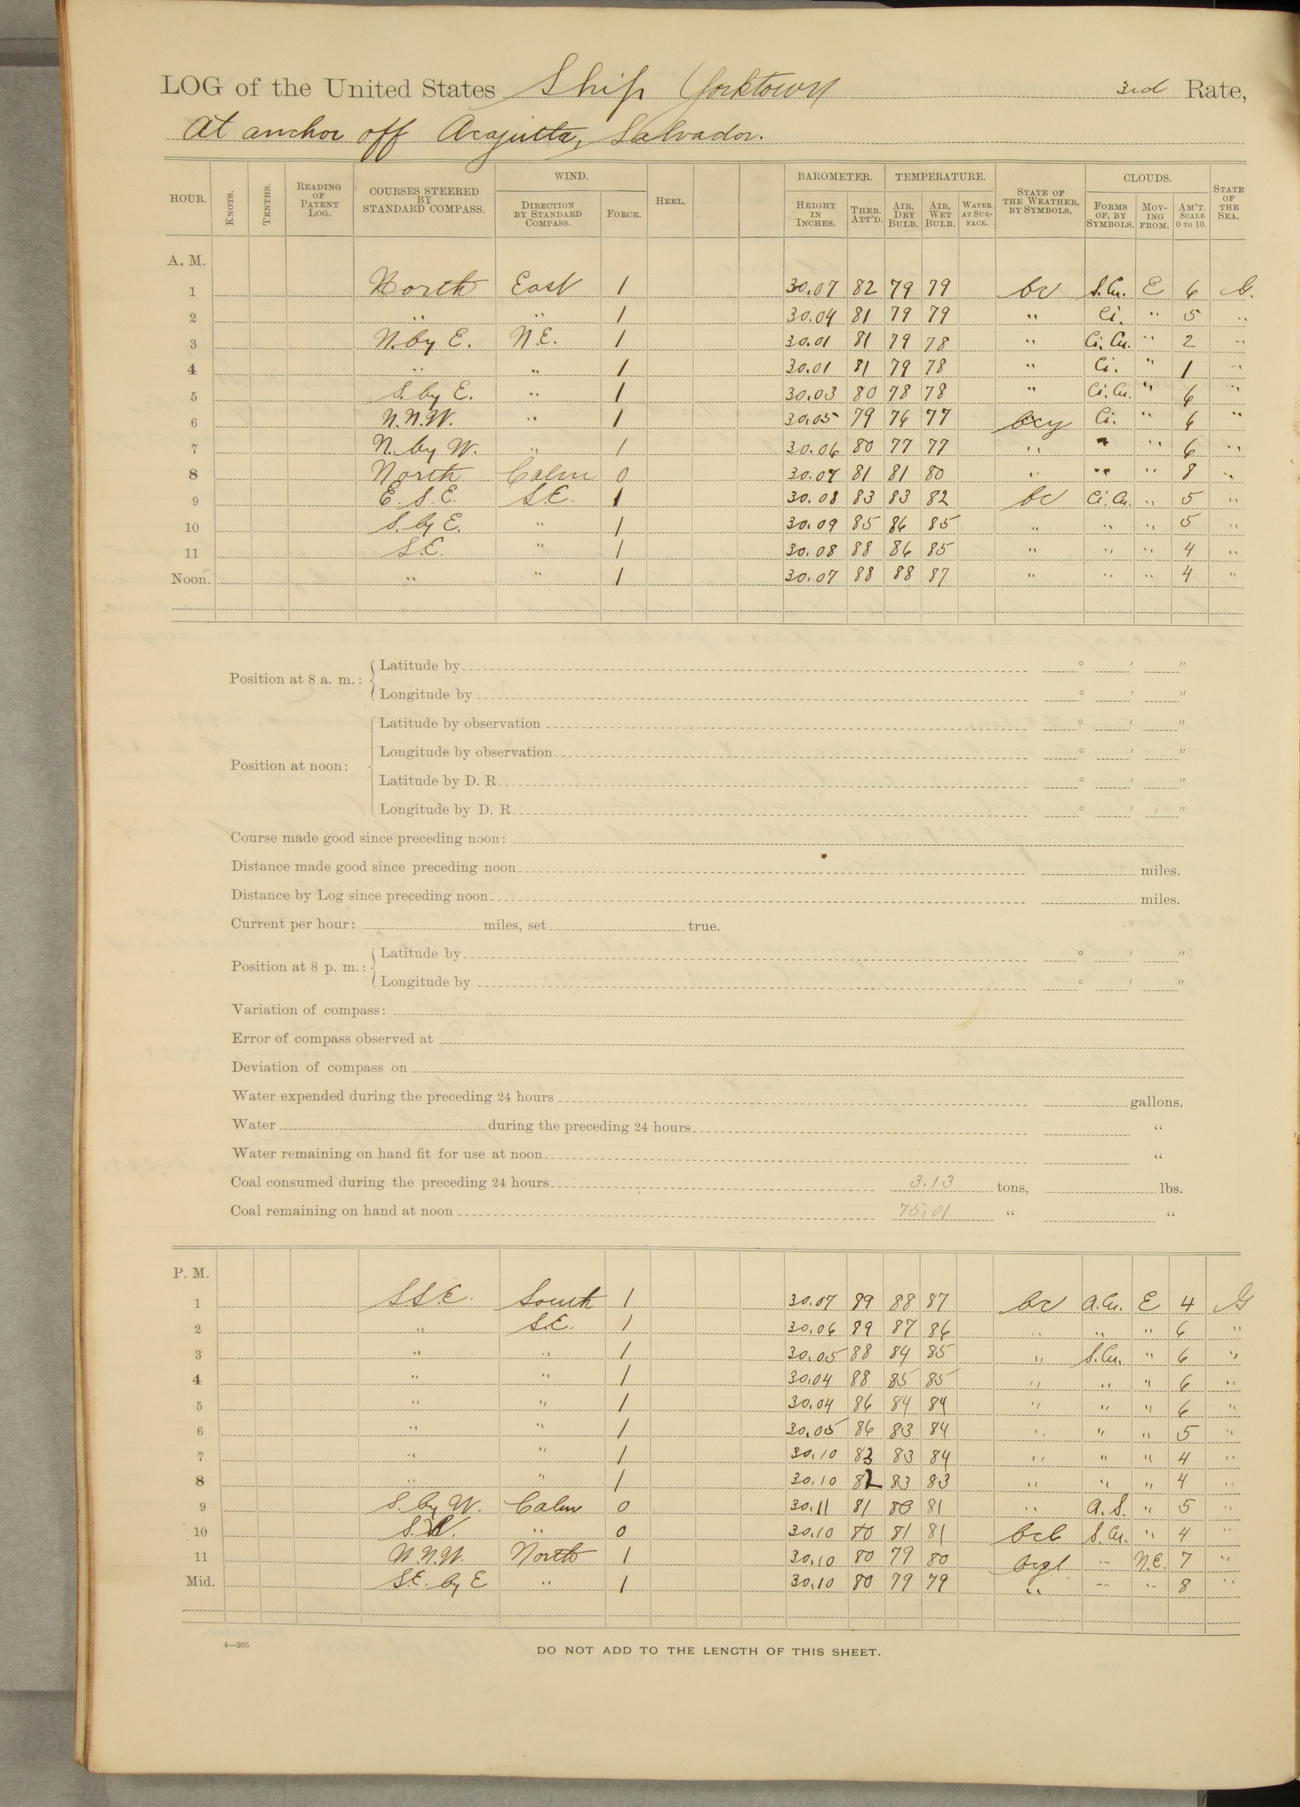 LOG of the United States Ship Yorktown 3rd Rate,
At anchor off Acajutta, Salvador.
HOUR. KNOTS. TENTHS. READING OF PATENT LOG. COURSES STEERED BY STANDARD COMPASS. WIND. DIRECTION BY STANDARD COMPASS. FORCE. HEEL. BAROMETER. HEIGHT IN INCHES. THER. ATT'D. TEMPERATURE. AIR, DRY BULB. AIR, WET BULB. WATER AT SURFACE. STATE OF THE WEATHER, BY SYMBOLS. CLOUDS. FORMS OF, BY SYMBOLS. MOVING FROM. AM'T. SCALE 0 TO 10. STATE OF THE SEA.
A. M.
1 North East 1 30.07 82 79 79 bc S.Cu. E 6 G.
2 " " 1 30.04 81 79 79 " Ci. " 5 "
3 N. by E. N.E. 1 30.01 81 79 78 " Ci. Cu. " 2 "
4 " " 1 30.01 81 79 78 " Ci. " 1 "
5 S. by E. " 1 30.03 80 78 78 " Ci. Cu. " 6 "
6 N.N.W. " 1 30.05 79 76 77 bcy Ci. " 6 "
7 N. by W. " 1 30.06 80 77 77 " " " 6 "
8 North Calm 0 30.07 81 81 80 " " " 8 "
9 E. S. E. S.E. 1 30.08 83 83 82 bc Ci. Cu. " 5 "
10 S. by E. " 1 30.09 85 86 85 " " " 5 "
11 S.E. " 1 30.08 88 86 85 " " " 4 "
Noon. " " 1 30.07 88 88 87 " " " 4 "
Position at 8 a. m.: Latitude by ° ' "
Longitude by ° ' "
Position at noon: Latitude by observation ° ' "
Longitude by observation ° ' "
Latitude by D. R. ° ' "
Longitude by D. R. ° ' "
Course made good since preceding noon:
Distance made good since preceding noon miles.
Distance by Log since preceding noon miles.
Current per hour: miles, set true.
Position at 8 p. m.: Latitude by ° ' "
Longitude by ° ' "
Variation of compass:
Error of compass observed at
Deviation of compass on
Water expended during the preceding 24 hours gallons.
Water during the preceding 24 hours "
Water remaining on hand fit for use at noon "
Coal consumed during the preceding 24 hours 3.13 tons, lbs.
Coal remaining on hand at noon 75.01 " "
P. M.
1 S.S.E. South 1 30.07 89 88 87 bc A.Cu. E 4 G
2 " S.E. 1 30.06 89 87 86 " " " 6 "
3 " " 1 30.05 88 84 85 " S.Cu. " 6 "
4 " " 1 30.04 88 85 85 " " " 6 "
5 " " 1 30.04 86 84 84 " " " 6 "
6 " " 1 30.05 86 83 84 " " " 5 "
7 " " 1 30.10 83 83 84 " " " 4 "
8 " " 1 30.10 82 83 83 " " " 4 "
9 S. by W. Calm 0 30.11 81 80 81 " A.S. " 5 "
10 S.W. " 0 30.10 80 81 81 bcl S.Cu. " 4 "
11 N.N.W. North 1 30.10 80 79 80 " N.E. 7 "
Mid. S.E. by E " 1 30.10 80 79 79 " " " 8 "
4—265
DO NOT ADD TO THE LENGTH OF THIS SHEET.